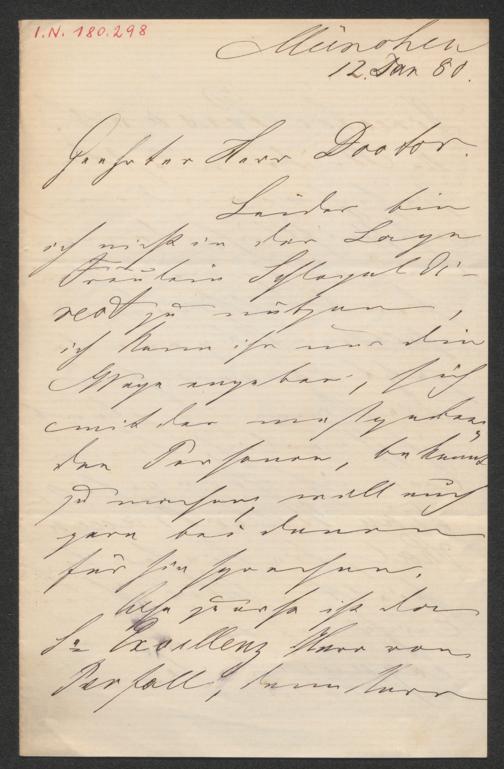 I.N. 180.298
München
12. Jan 80.
Geehrter Herr Doctor.
Leider bin
ich nicht in der Lage
Fräulein Schlegel di-
rect zu nützen,
ich kann ihr nur die
Wege angeben, sich
mit den
den Personen, bekannt
zu machen, will auch
gern bei denen
für sie sprechen.
ist da
Se Excellenz Herr von
Perfall, dann Herr